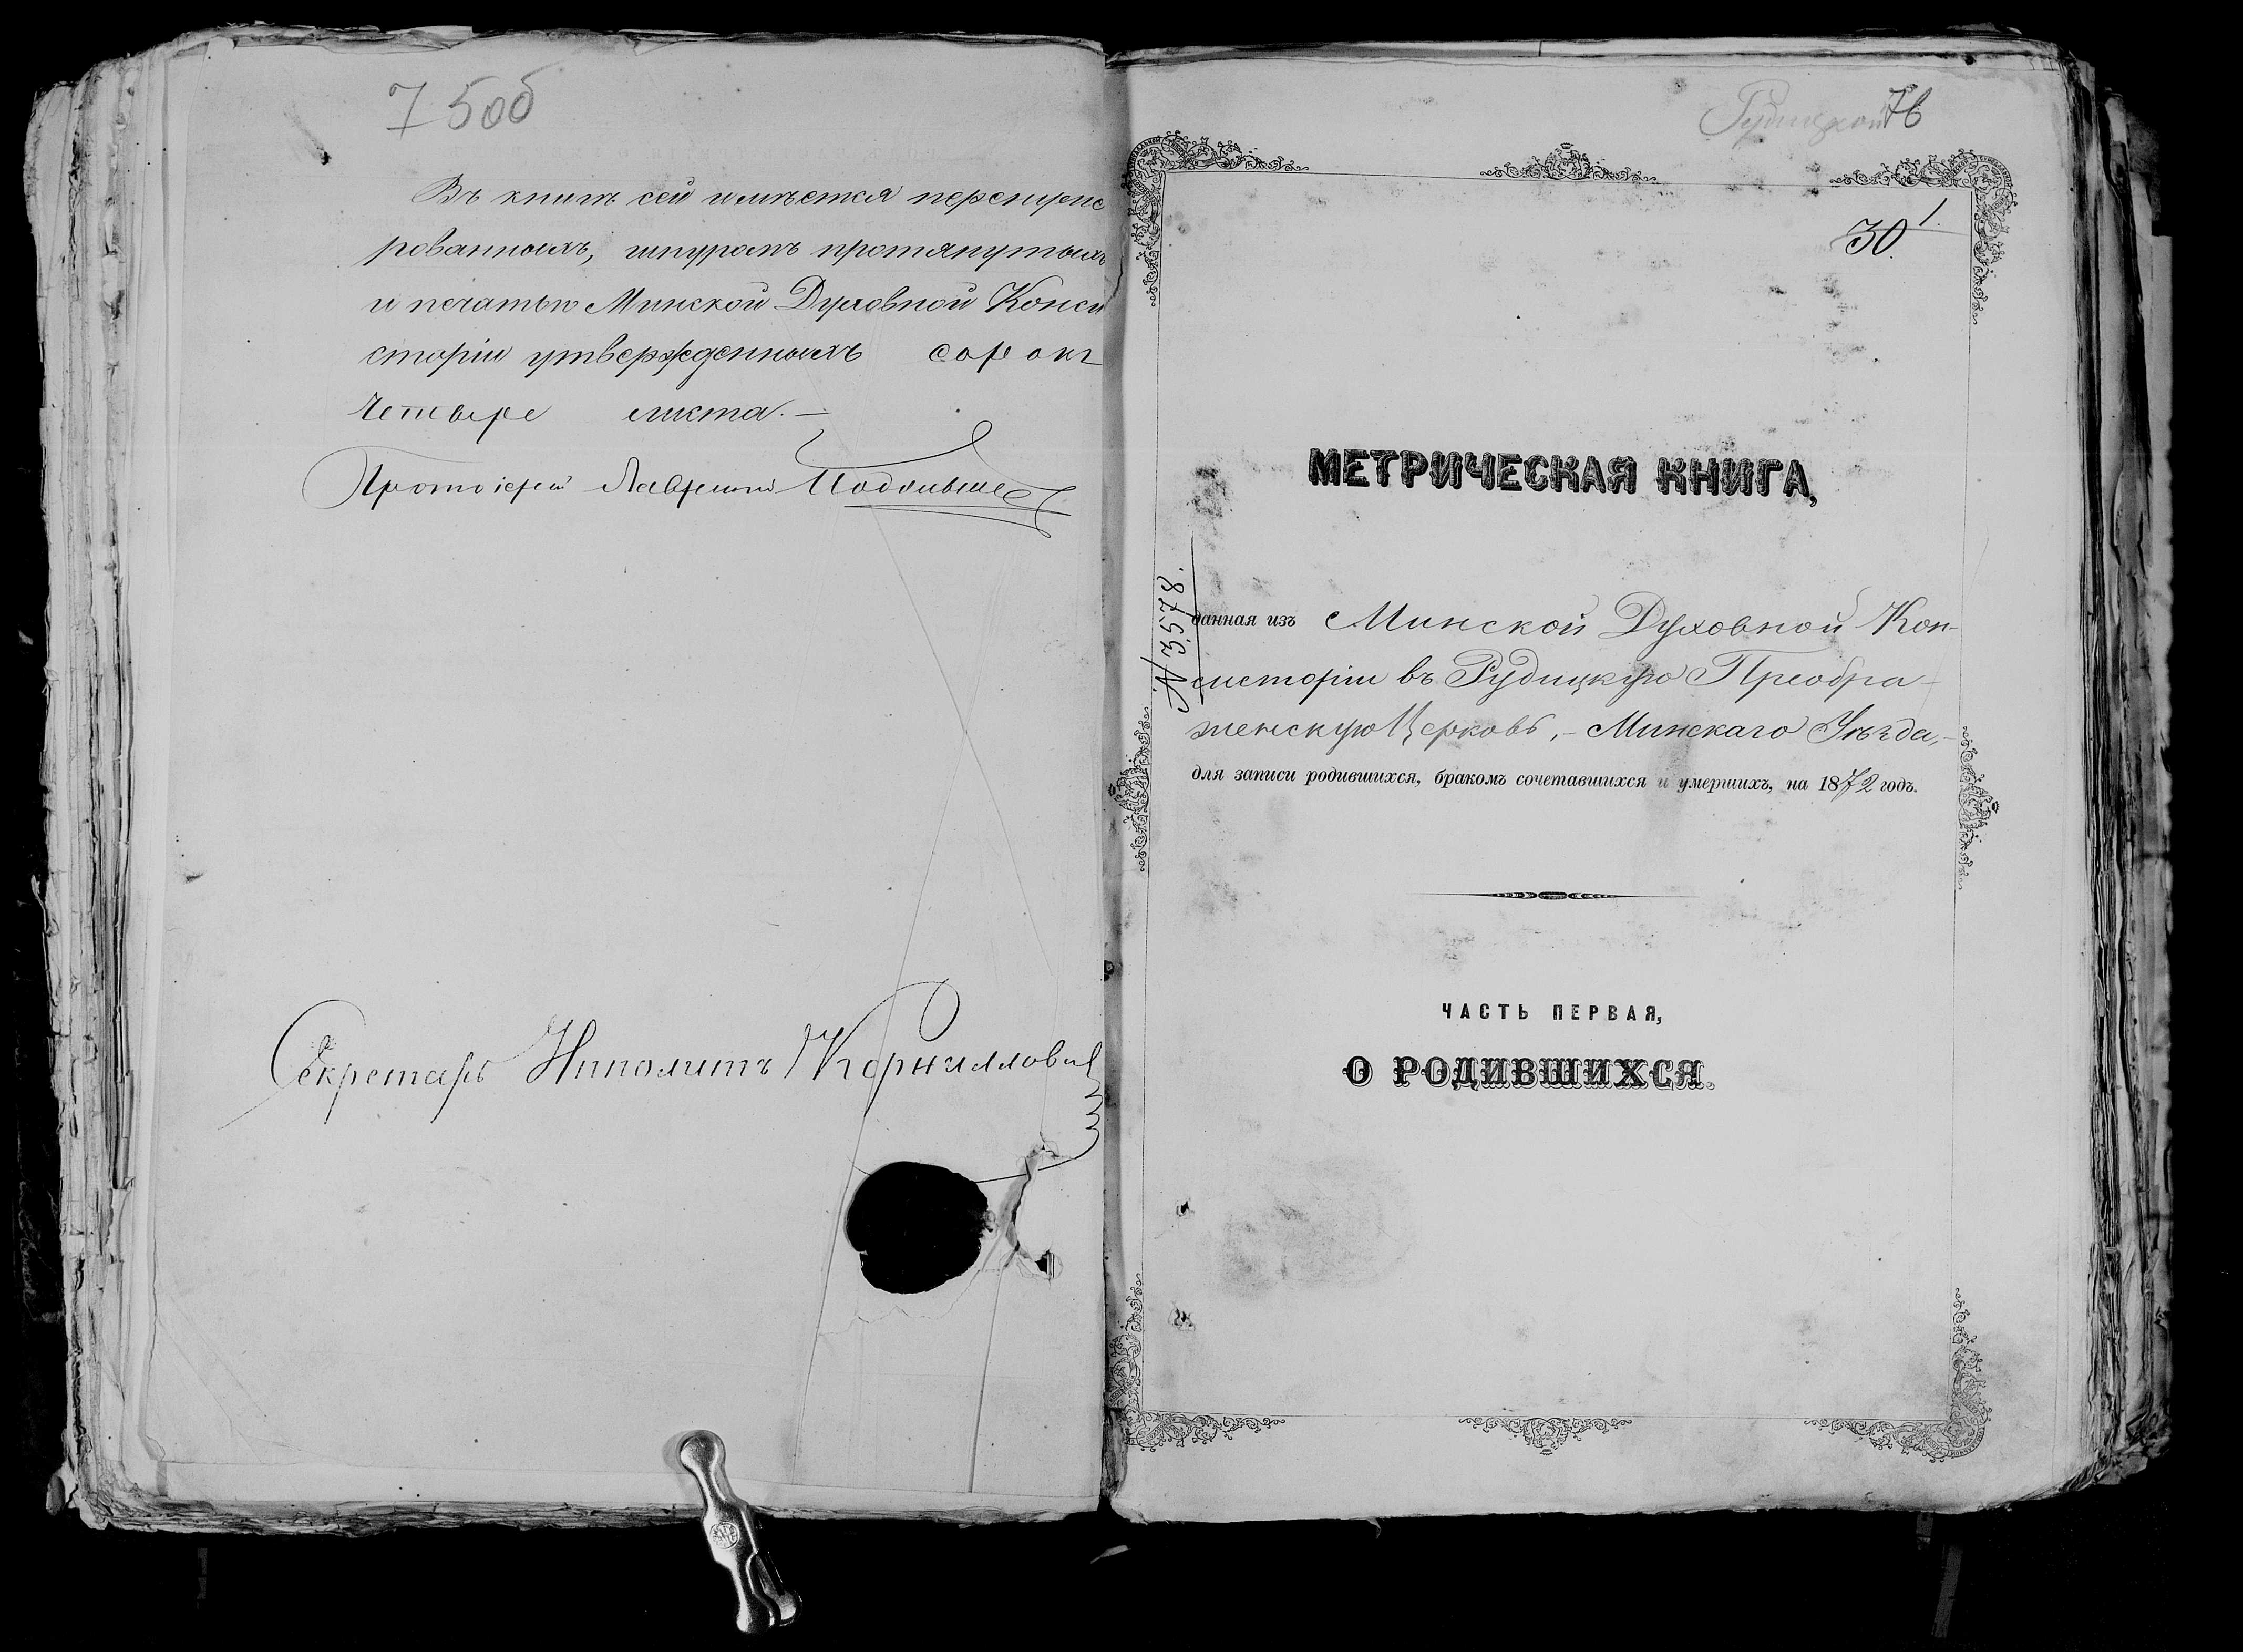 75об
Въ книгѣ сей имѣется перенуме
рованныхъ, шнуромъ протянутыхъ
и печатью Минской Духовной Конси
сторіи утвержденныхъ сорокъ
четыре листа.—
Протоіерей Лаврентій
Секретарь Ипполитъ Корнилович
Рудицкой 76
1.
30.
МЕТРИЧЕСКАЯ КНИГА,
№ 3578.
данная изъ Минской Духовной Кон-
систоріи въ Рудицкую Преобра-
женскую Церковь, - Минскаго Уѣзда, -
для записи родившихся, бракомъ сочетавшихся и умершихъ, на 1872 годъ.
ЧАСТЬ ПЕРВАЯ,
О РОДИВШИХСЯ.